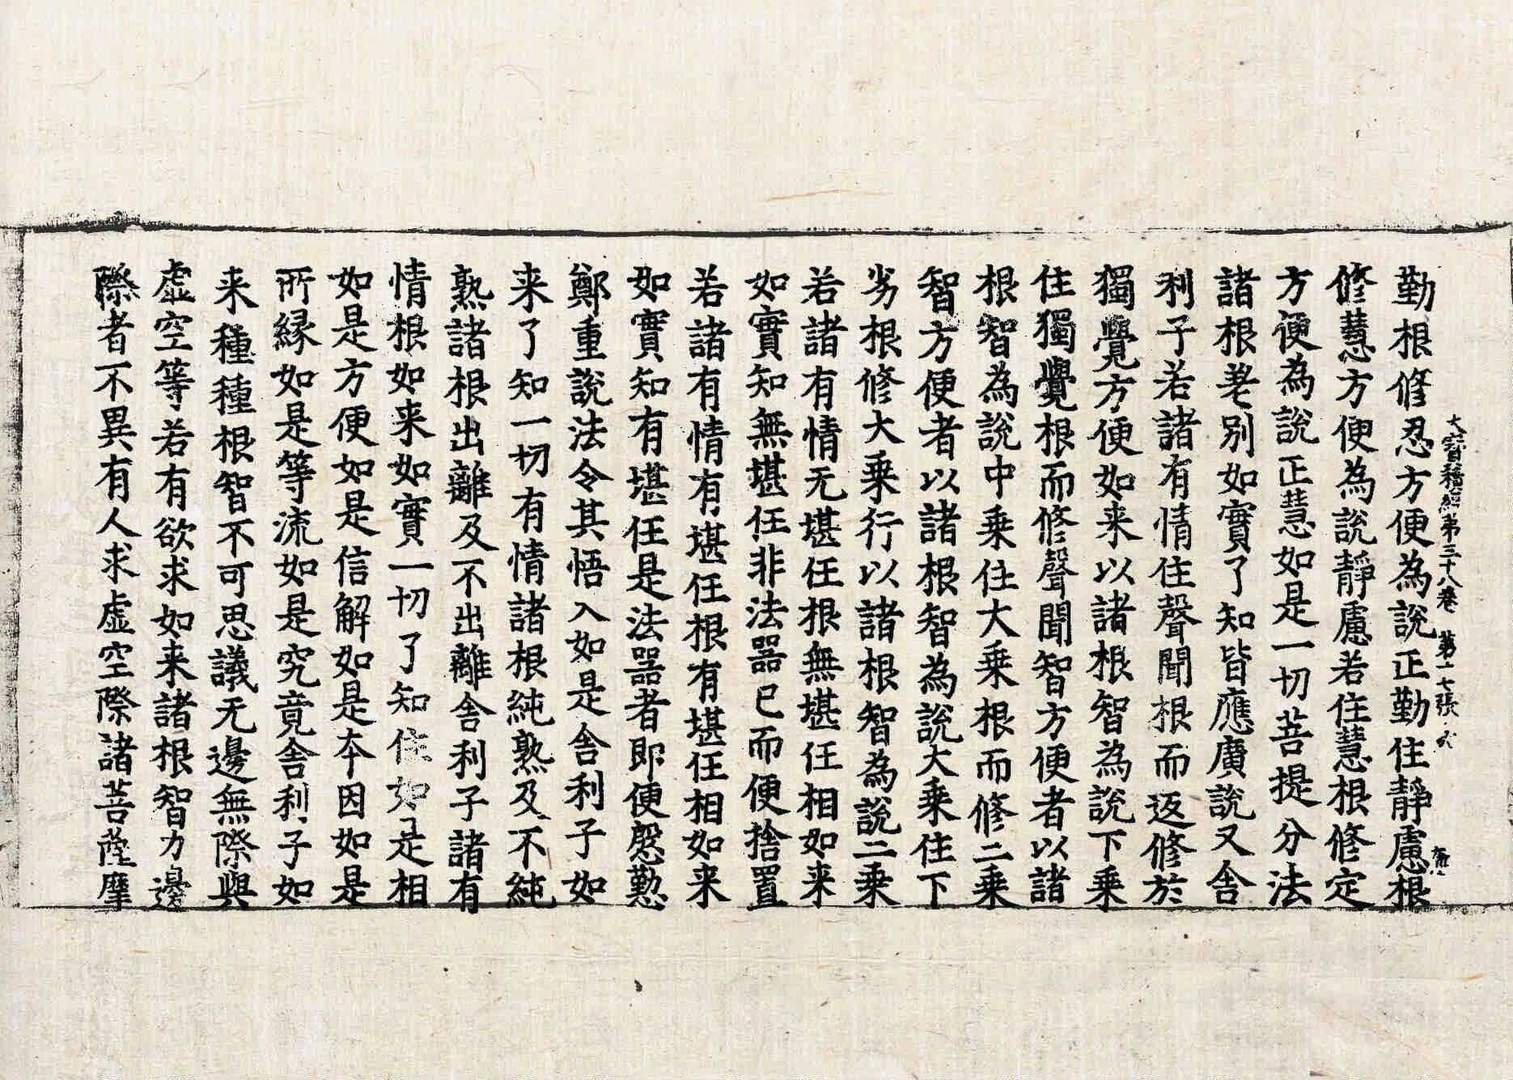 大寶積經第三十八卷 第十七張
勤根修忍方便為說正勤住靜慮根
修慧方便為說靜慮若住慧根修定
方便為說正慧如是一切菩提分法
諸根差別如實了知皆應廣說又舍
利子若諸有情住聲聞根而返修於
獨覺方便如来以諸根智為說下乗
住獨覺根而修聲聞智方便者以諸
根智為說中乗住大乗根而修二乗
智方便者以諸根智為說大乗住下
劣根修大乗行以諸根智為說二乗
若諸有情无堪任根無堪任相如来
如實知無堪任非法器已而便捨置
若諸有情有堪任根有堪任相如来
如實知有堪任是法器者即便慇懃
鄭重說法令其悟入如是舍利子如
来了知一切有情諸根純熟及不純
熟諸根出離及不出離舍利子諸有
情根如来如實一切了知住如是相
如是方便如是信解如是本因如是
所縁如是等流如是究竟舍利子如
来種種根智不可思議无邊無際與
虛空等若有欲求如来諸根智力邊
際者不異有人求虛空際諸菩薩摩